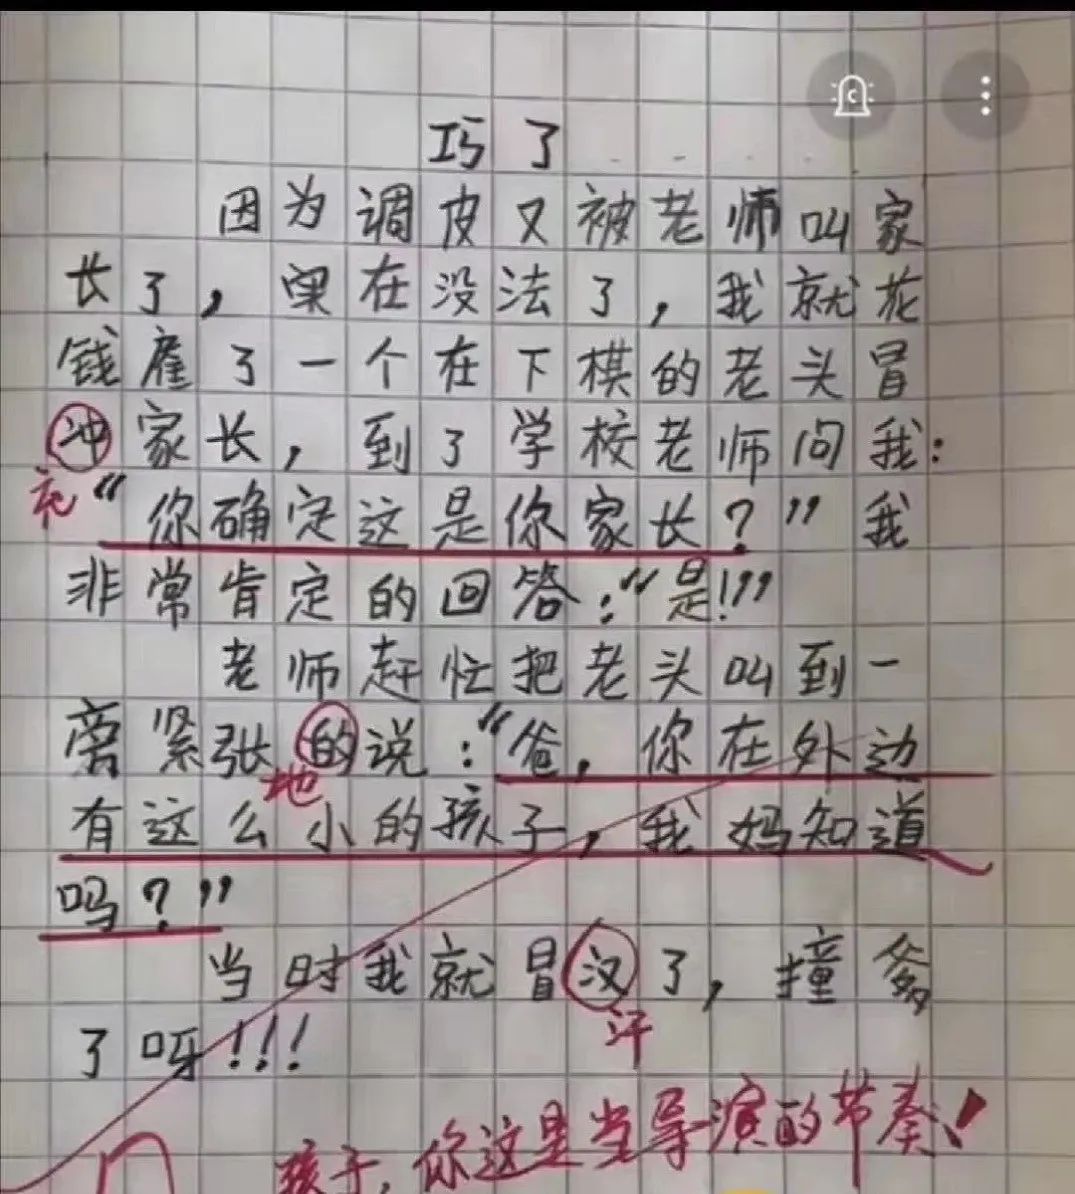 巧了
因为调皮又被老师叫家
长了，实在没法了，我就花
钱雇了一个在下棋的老头冒
冲家长，到了学校老师问我：
充
“你确定这是你家长？”我
非常肯定的回答：“是!”
老师赶忙把老头叫到一
旁紧张的说：“爸，你在外边
地
有这么小的孩子，我妈知道
吗？”
当时我就冒汉了，撞爹
汗
了呀!!!
孩子，你这是当导演的节奏！